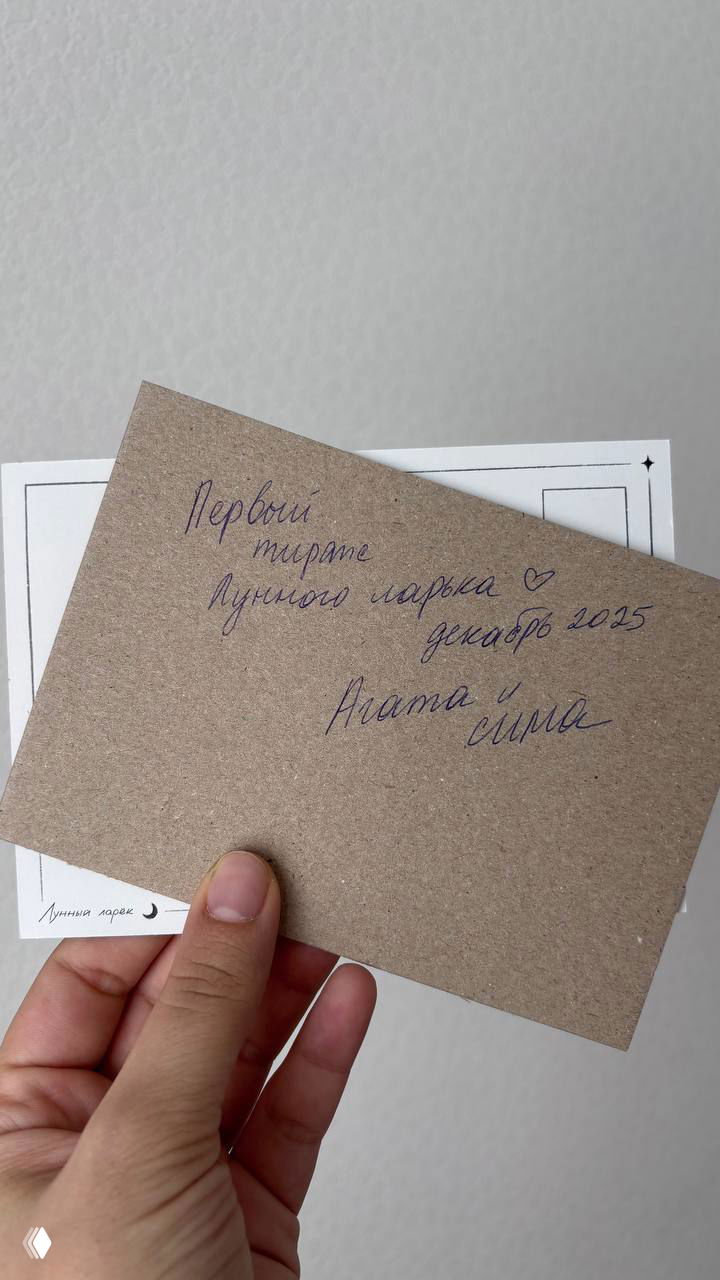 Первый
тираж
Лунного ларька ♡
декабрь 2025
Агата и
Сима
Лунный ларёк